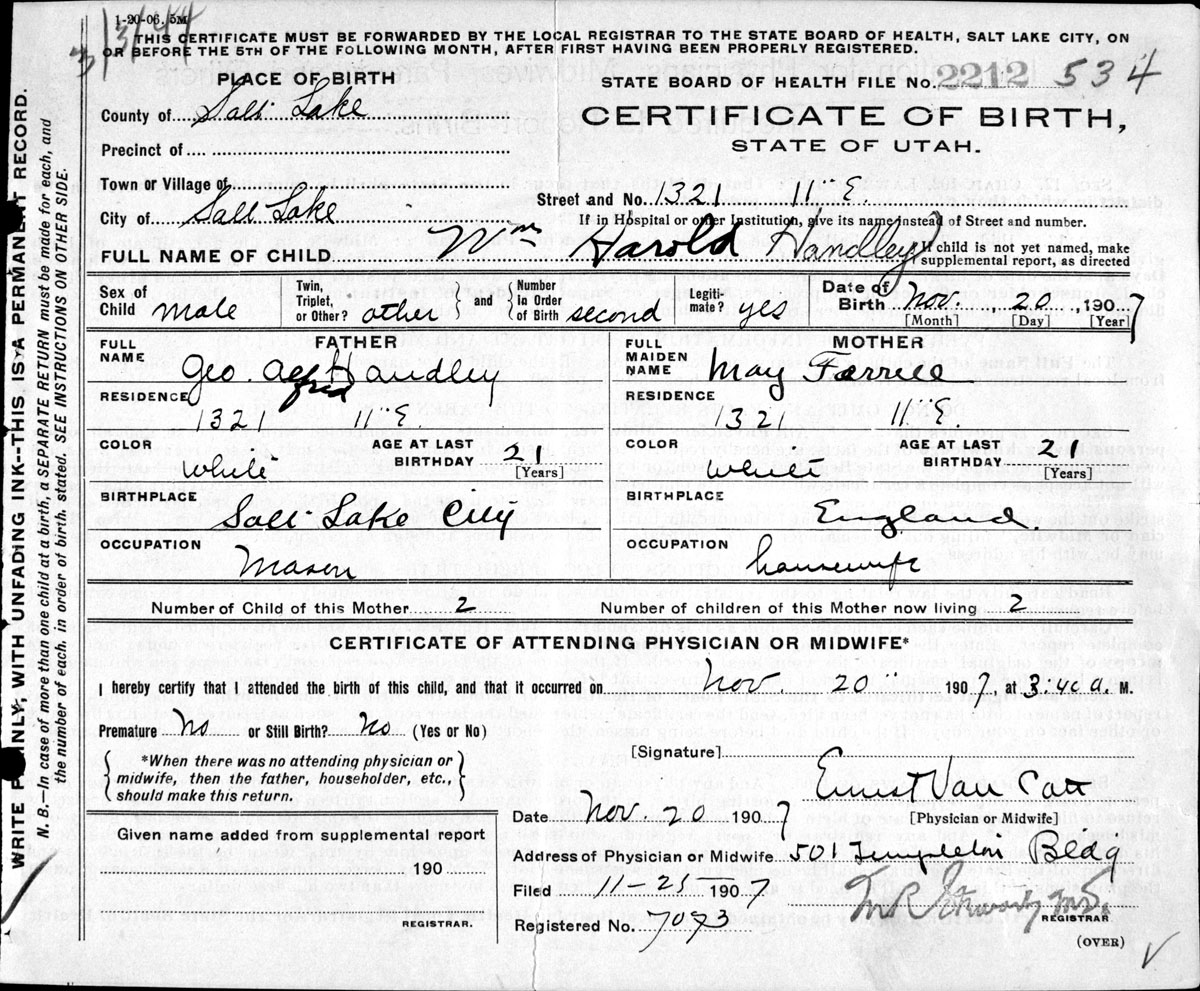 1-20-06. 5M
3/3/44
THIS CERTIFICATE MUST BE FORWARDED BY THE LOCAL REGISTRAR TO THE STATE BOARD OF HEALTH, SALT LAKE CITY, ON
OR BEFORE THE 5TH OF THE FOLLOWING MONTH, AFTER FIRST HAVING BEEN PROPERLY REGISTERED.
PLACE OF BIRTH
STATE BOARD OF HEALTH FILE No. 2212 534
County of Salt Lake
CERTIFICATE OF BIRTH,
STATE OF UTAH.
Precinct of
Town or Village of
Street and No. 1321 11" E.
City of Salt Lake
If in Hospital or other Institution, give its name instead of Street and number.
FULL NAME OF CHILD Wm Harold Handley
If child is not yet named, make supplemental report, as directed
Sex of Child male
Twin, Triplet, or Other? other { and } Number in Order of Birth second
Legitimate? yes
Date of Birth Nov. 20, 1907
[Month] [Day] [Year]
FATHER
FULL NAME Geo. Alfred Handley
RESIDENCE
1321 11" E.
COLOR White
AGE AT LAST BIRTHDAY 21 [Years]
BIRTHPLACE
Salt Lake City
OCCUPATION
Mason
MOTHER
FULL MAIDEN NAME May Farrell
RESIDENCE
1321 11" E.
COLOR White
AGE AT LAST BIRTHDAY 21 [Years]
BIRTHPLACE
England.
OCCUPATION
housewife
Number of Child of this Mother 2
Number of children of this Mother now living 2
CERTIFICATE OF ATTENDING PHYSICIAN OR MIDWIFE*
I hereby certify that I attended the birth of this child, and that it occurred on Nov. 20" 1907, at 3:40 a. M.
Premature No or Still Birth? No (Yes or No)
[Signature]
*When there was no attending physician or
midwife, then the father, householder, etc.,
should make this return.
Ernest Van Cott
[Physician or Midwife]
Date Nov. 20 1907
Given name added from supplemental report
190
REGISTRAR.
Address of Physician or Midwife 501 Templeton Bldg
Filed 11-25 1907
REGISTRAR
Registered No. 7073
(OVER)
WRITE PLAINLY, WITH UNFADING INK--THIS IS A PERMANENT RECORD.
N. B.—In case of more than one child at a birth, a SEPARATE RETURN must be made for each, and
the number of each, in order of birth, stated. SEE INSTRUCTIONS ON OTHER SIDE.